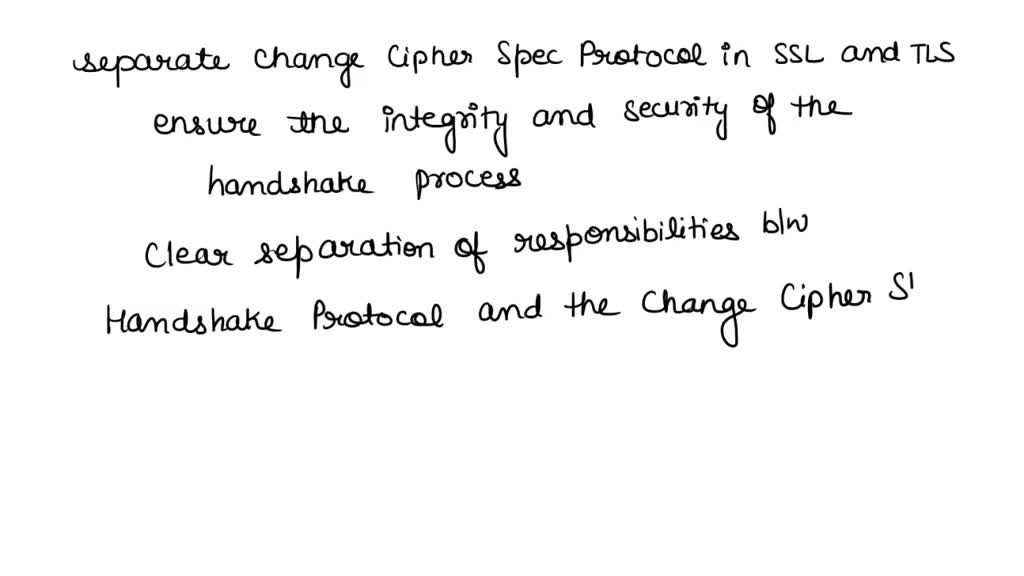 separate change Cipher Spec Protocol in SSL and TLS
ensure the integrity and security of the
handshake process
Clear separation of responsibilities b/w
Handshake Protocol and the Change Cipher S